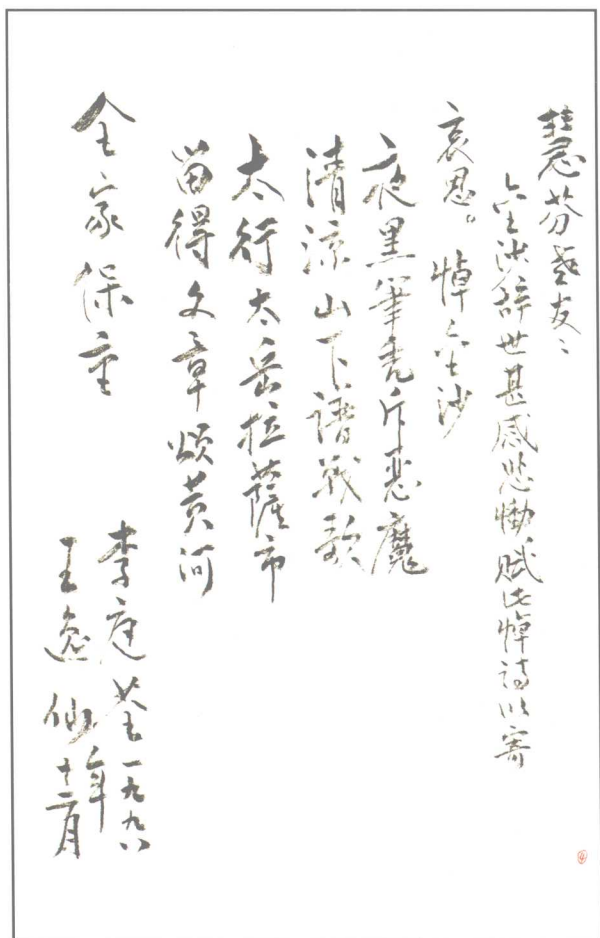 慧芬老友:
金沙辞世甚感悲恸,赋此悼诗以寄
哀思。 悼金沙
夜黑笔秃斥恶魔
清凉山下谱战歌
太行太岳拉萨市
留得文章颂黄河
全家保重
李庭荃 一九九八
年
王逸仙 十二月
④